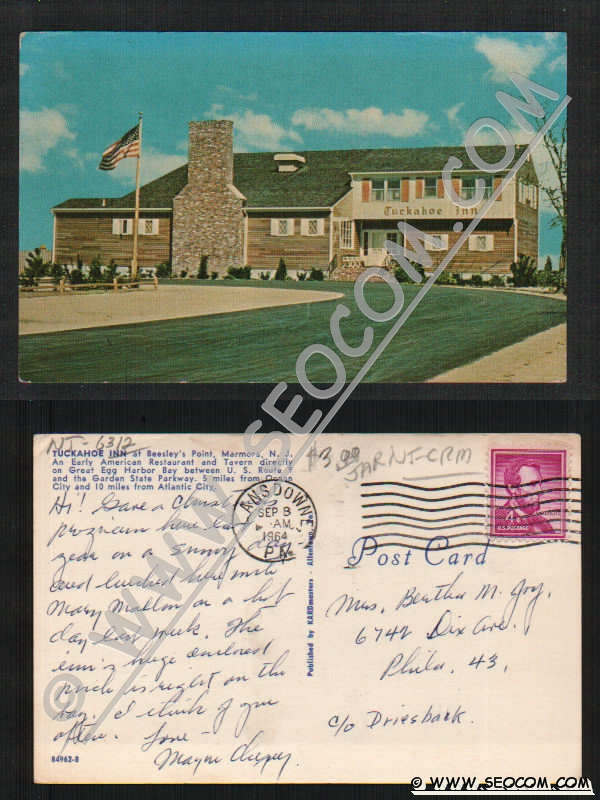 Tuckahoe Inn
© WWW.SEOCOM.COM
NJ-6312
$3.00
JAR NJ-CPM
TUCKAHOE INN at Beesley's Point, Marmora, N. J.
An Early American Restaurant and Tavern directly
on Great Egg Harbor Bay between U. S. Route 9
and the Garden State Parkway. 5 miles from Ocean
City and 10 miles from Atlantic City.
Hi! Gave a Christ
program here last
year on a sunny day
and lunched here with
Mary Mallon on a hot
day last week. The
inn's huge enclosed
porch is right on the
bay. I think of you
often. Love -
Mayne
84962-B
Published by KARDmasters - Allentown, Pa.
LANSDOWNE
SEP 8
AM
1964
PA.
4¢
U.S. POSTAGE
Post Card
Mrs. Bertha M. Joy,
6742 Dix Ave.
Phila. 43,
c/o Driesback.
© WWW.SEOCOM.COM
© WWW.SEOCOM.COM